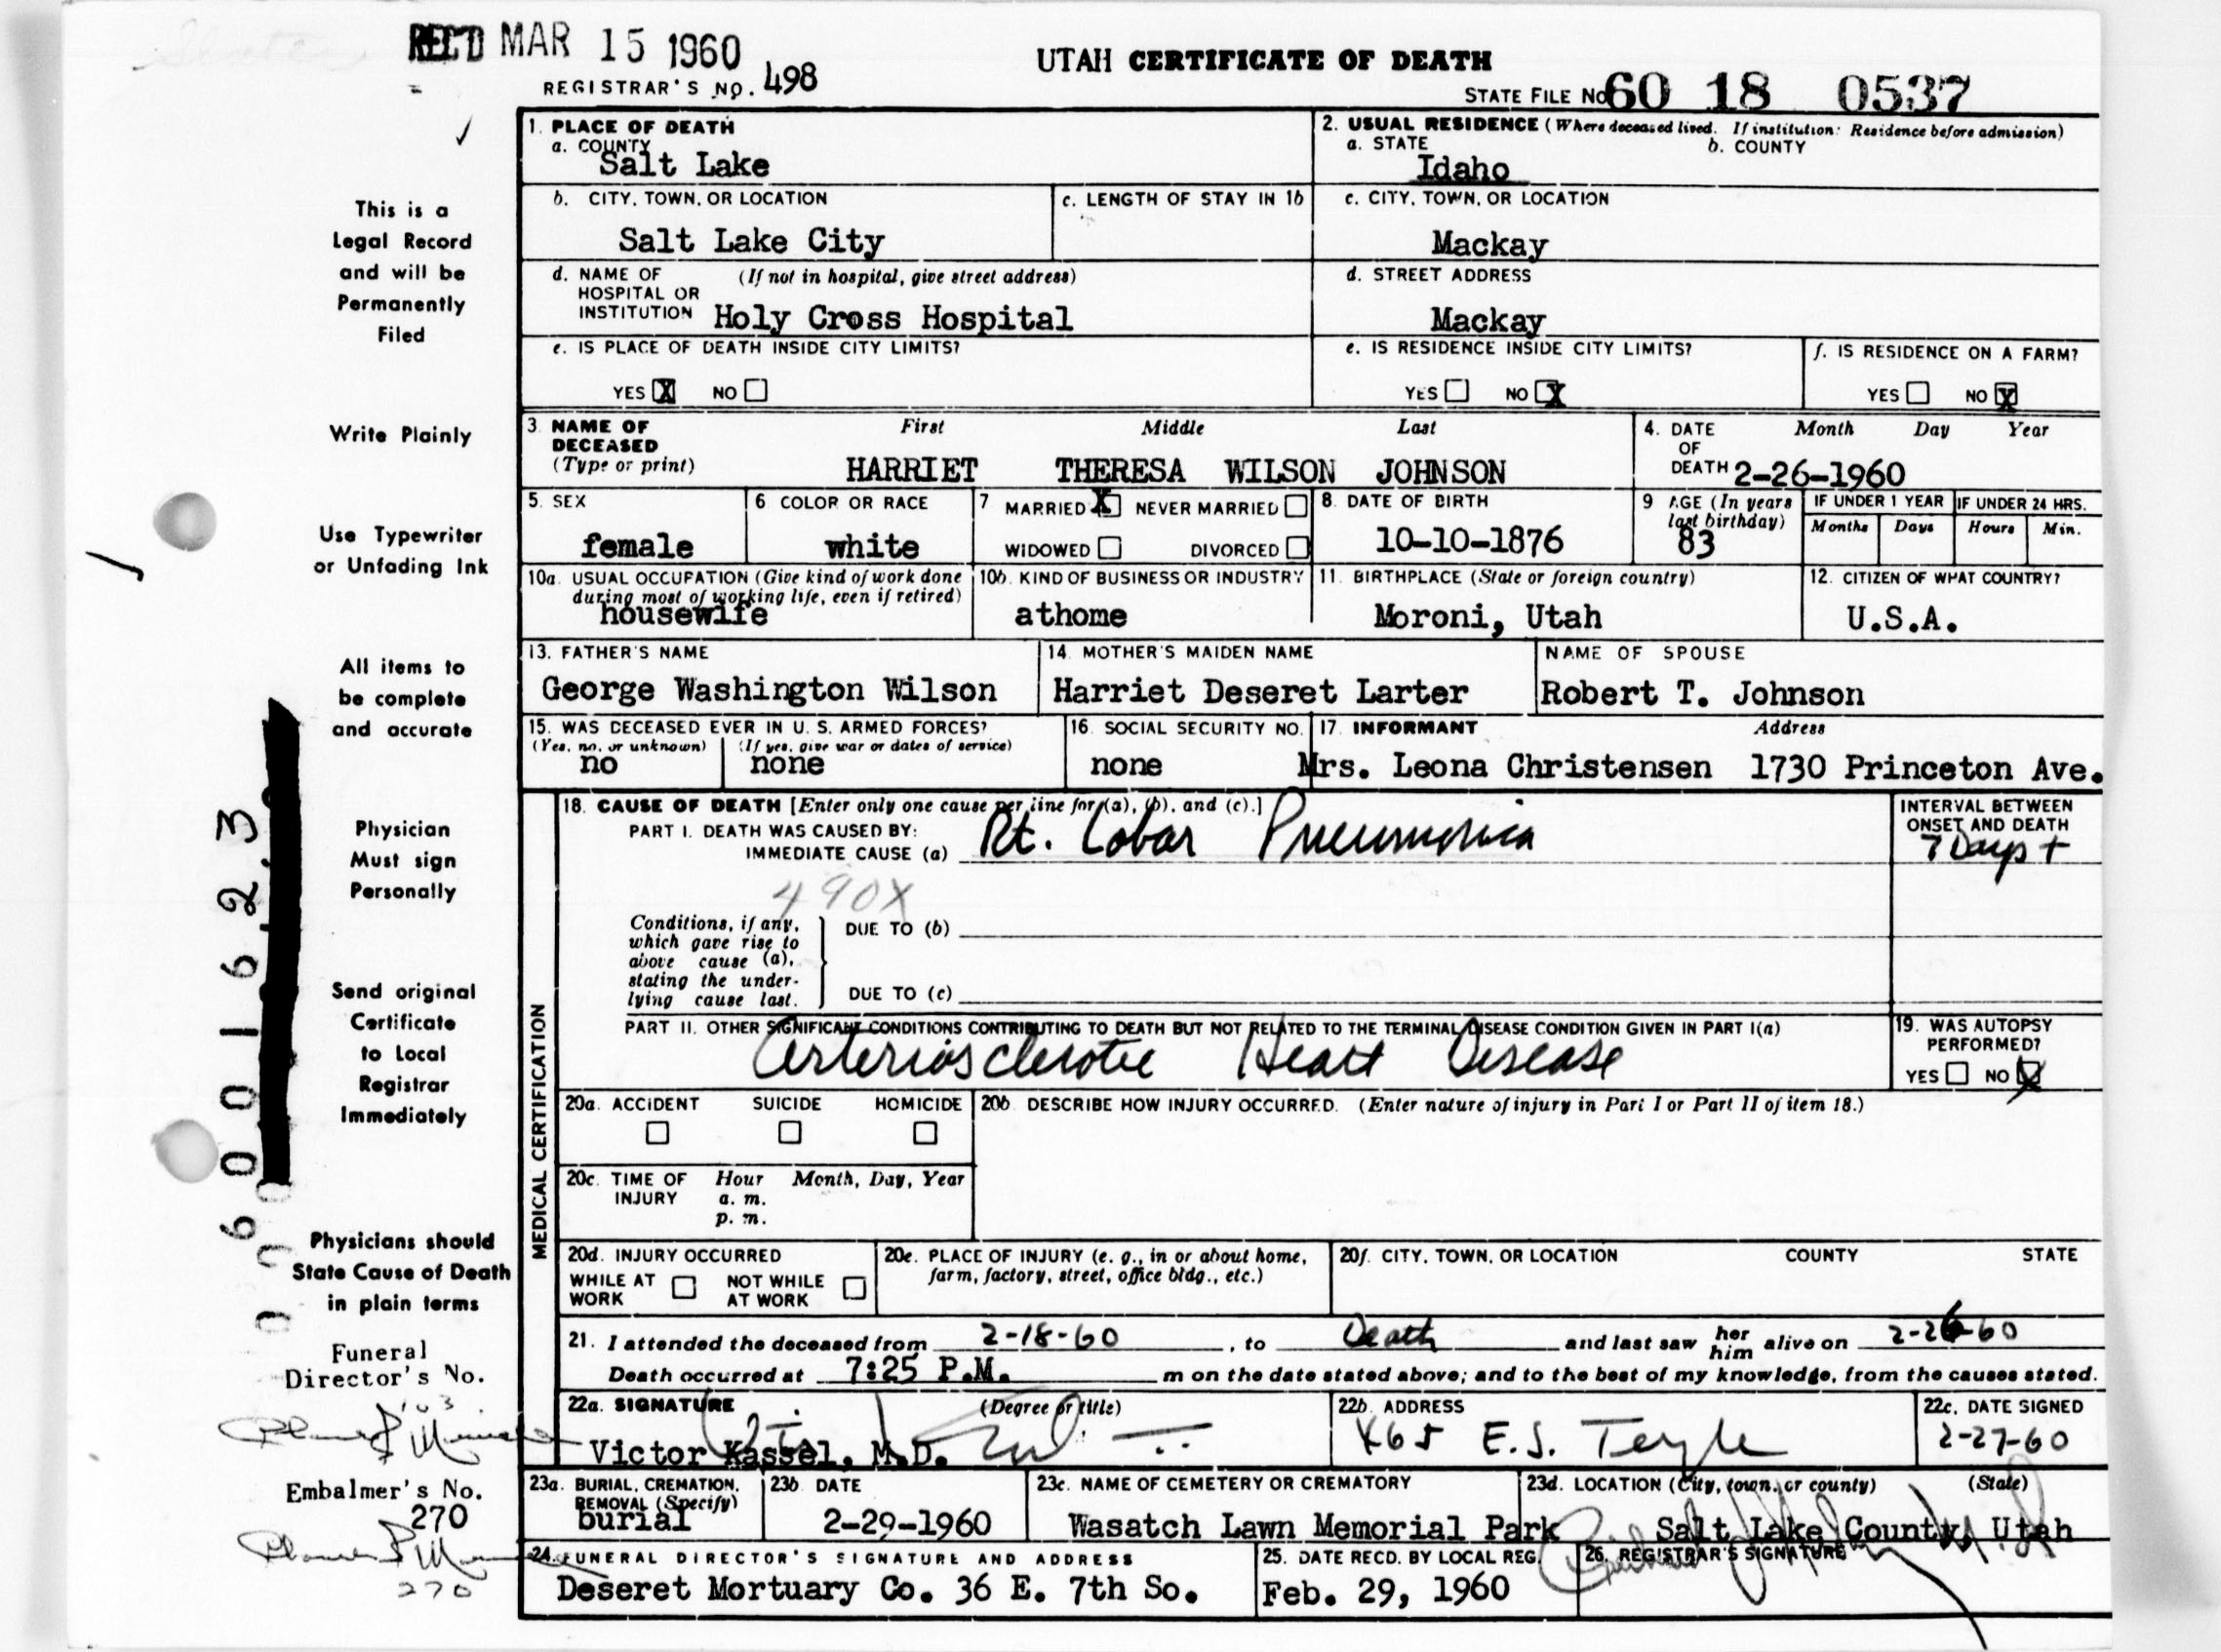 REC'D MAR 15 1960
REGISTRAR'S NO. 498
UTAH CERTIFICATE OF DEATH
STATE FILE NO 60 18 0537
This is a
Legal Record
and will be
Permanently
Filed
Write Plainly
Use Typewriter
or Unfading Ink
All items to
be complete
and accurate
Physician
Must sign
Personally
Send original
Certificate
to Local
Registrar
Immediately
Physicians should
State Cause of Death
in plain terms
Funeral
Director's No.
103
Embalmer's No.
270
270
060001623
1. PLACE OF DEATH
a. COUNTY
Salt Lake
2. USUAL RESIDENCE (Where deceased lived. If institution: Residence before admission)
a. STATE b. COUNTY
Idaho
b. CITY, TOWN, OR LOCATION
Salt Lake City
c. LENGTH OF STAY IN 1b
c. CITY, TOWN, OR LOCATION
Mackay
d. NAME OF (If not in hospital, give street address)
HOSPITAL OR
INSTITUTION Holy Cross Hospital
d. STREET ADDRESS
Mackay
e. IS PLACE OF DEATH INSIDE CITY LIMITS?
YES X NO
e. IS RESIDENCE INSIDE CITY LIMITS?
YES NO X
f. IS RESIDENCE ON A FARM?
YES NO X
3. NAME OF First Middle Last
DECEASED
(Type or print) HARRIET THERESA WILSON JOHNSON
4. DATE Month Day Year
OF
DEATH 2-26-1960
5. SEX
female
6 COLOR OR RACE
white
7 MARRIED X NEVER MARRIED
WIDOWED DIVORCED
8. DATE OF BIRTH
10-10-1876
9 AGE (In years
last birthday)
83
IF UNDER 1 YEAR IF UNDER 24 HRS.
Months Days Hours Min.
10a. USUAL OCCUPATION (Give kind of work done
during most of working life, even if retired)
housewife
10b. KIND OF BUSINESS OR INDUSTRY
athome
11. BIRTHPLACE (State or foreign country)
Moroni, Utah
12. CITIZEN OF WHAT COUNTRY?
U.S.A.
13. FATHER'S NAME
George Washington Wilson
14. MOTHER'S MAIDEN NAME
Harriet Deseret Larter
NAME OF SPOUSE
Robert T. Johnson
15. WAS DECEASED EVER IN U. S. ARMED FORCES?
(Yes, no, or unknown) (If yes, give war or dates of service)
no none
16. SOCIAL SECURITY NO.
none
17. INFORMANT Address
Mrs. Leona Christensen 1730 Princeton Ave.
MEDICAL CERTIFICATION
18. CAUSE OF DEATH [Enter only one cause per line for (a), (b), and (c).]
PART I. DEATH WAS CAUSED BY:
IMMEDIATE CAUSE (a) Rt. Lobar Pneumonia
INTERVAL BETWEEN
ONSET AND DEATH
7 Days +
490X
Conditions, if any,
which gave rise to
above cause (a),
stating the under-
lying cause last.
DUE TO (b)
DUE TO (c)
PART II. OTHER SIGNIFICANT CONDITIONS CONTRIBUTING TO DEATH BUT NOT RELATED TO THE TERMINAL DISEASE CONDITION GIVEN IN PART I(a)
Arteriosclerotic Heart Disease
19. WAS AUTOPSY
PERFORMED?
YES NO X
20a. ACCIDENT SUICIDE HOMICIDE
20b. DESCRIBE HOW INJURY OCCURRED. (Enter nature of injury in Part I or Part II of item 18.)
20c. TIME OF Hour Month, Day, Year
INJURY a. m.
p. m.
20d. INJURY OCCURRED
WHILE AT NOT WHILE
WORK AT WORK
20e. PLACE OF INJURY (e. g., in or about home,
farm, factory, street, office bldg., etc.)
20f. CITY, TOWN, OR LOCATION COUNTY STATE
21. I attended the deceased from 2-18-60, to Death and last saw her him alive on 2-26-60
Death occurred at 7:25 P.M. m on the date stated above; and to the best of my knowledge, from the causes stated.
22a. SIGNATURE (Degree or title)
Victor Kassel, M.D.
22b. ADDRESS
465 E.S. Temple
22c. DATE SIGNED
2-27-60
23a. BURIAL, CREMATION,
REMOVAL (Specify)
burial
23b. DATE
2-29-1960
23c. NAME OF CEMETERY OR CREMATORY
Wasatch Lawn Memorial Park
23d. LOCATION (City, town, or county) (State)
Salt Lake County Utah
24. FUNERAL DIRECTOR'S SIGNATURE AND ADDRESS
Deseret Mortuary Co. 36 E. 7th So.
25. DATE RECD. BY LOCAL REG.
Feb. 29, 1960
26. REGISTRAR'S SIGNATURE